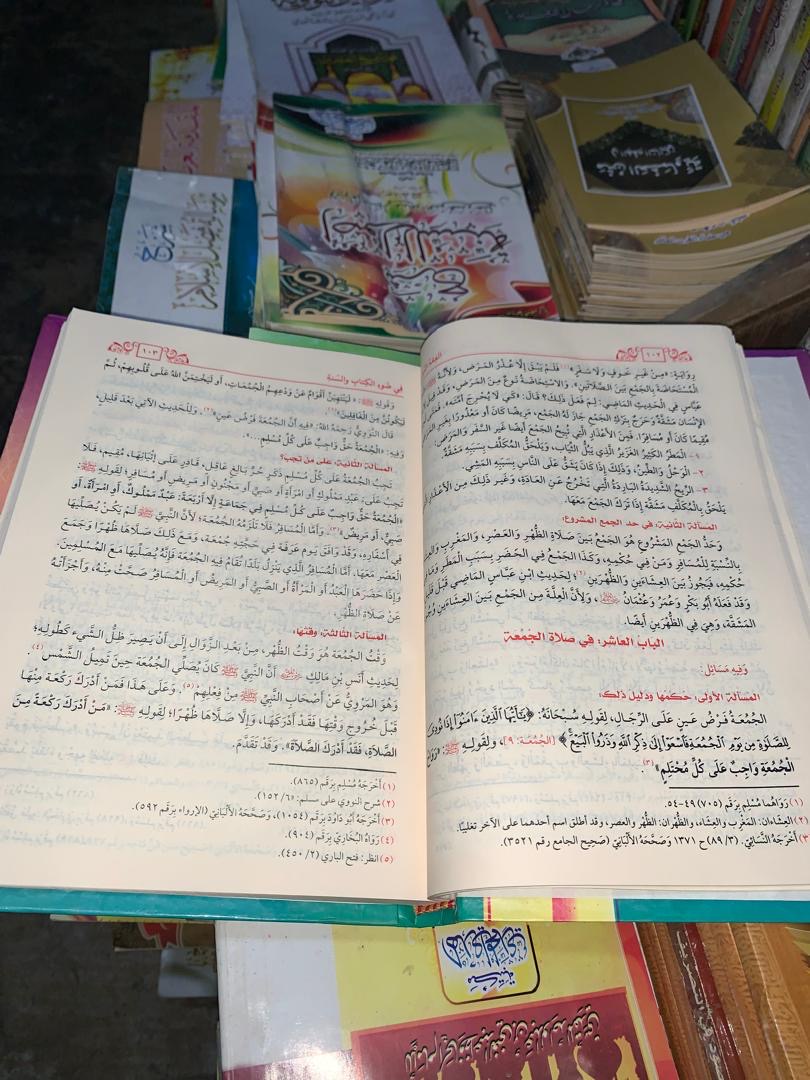 ١٠٢
رِوَايَةٍ: «مِنْ غَيرِ خَوفٍ وَلَا سَفَرٍ»(١) فَلَمْ يَبْقَ إِلَّا عُذْرُ المَرَضِ، وَلأَنَّهُ
المُسْتَحَاضَةَ بِالجَمْعِ بَينَ الصَّلَاتَينِ. وَالاسْتِحَاضَةُ نَوعٌ مِنَ المَرَضِ، وَقَدْ
عَبَّاسٍ فِي الحَدِيثِ المَاضِي: لِمَ فَعَلَ ذَلِكَ؟ قَالَ: «كَي لَا يُحْرِجَ أُمَّتَهُ».
الإِنْسَانَ مَشَقَّةٌ وَحَرَجٌ بِتَرْكِ الجَمْعِ جَازَ لَهُ الجَمْعُ، مَرِيضًا كَانَ أَو مَعْذُورًا
مُقِيمًا كَانَ أَو مُسَافِرًا. فَمِنَ الأَعْذَارِ الَّتِي تُبِيحُ الجَمْعَ أَيضًا غَيرَ السَّفَرِ وَالمَرَضِ:
١- المَطَرُ الكَثِيرُ الغَزِيرُ الَّذِي يَبُلُّ الثِّيَابَ، وَيَلْحَقُ المُكَلَّفَ بِسَبَبِهِ مَشَقَّةٌ.
٢- الوَحْلُ وَالطِّينُ، وَذَلِكَ إِذَا كَانَ يَشُقُّ عَلَى النَّاسِ بِسَبَبِهِ المَشْيُ.
٣- الرِّيحُ الشَّدِيدَةُ البَارِدَةُ الَّتِي تَخْرُجُ عَنِ العَادَةِ، وَغَيرُ ذَلِكَ مِنَ الأَعْذَارِ
يَلْحَقُ بِالمُكَلَّفِ مَشَقَّةٌ إِذَا تَرَكَ الجَمْعَ مَعَهَا.
المسألة الثانية، في حد الجمع المشروع:
وَحَدُّ الجَمْعِ المَشْرُوعِ هُوَ الجَمْعُ بَينَ صَلَاةِ الظُّهْرِ وَالعَصْرِ، وَالمَغْرِبِ
بِالنِّسْبَةِ لِلْمُسَافِرِ وَمَنْ فِي حُكْمِهِ، وَكَذَا الجَمْعُ فِي الحَضَرِ بِسَبَبِ المَطَرِ
حُكْمِهِ، فَيَجُوزُ بَينَ العِشَاءَينِ وَالظُّهْرَينِ(٢)؛ لِحَدِيثِ ابْنِ عَبَّاسٍ المَاضِي
وَقَدْ فَعَلَهُ أَبُو بَكْرٍ وَعُمَرُ وَعُثْمَانُ، وَلأَنَّ العِلَّةَ مِنَ الجَمْعِ بَينَ العِشَاءَينِ
المَشَقَّةُ، وَهِيَ فِي الظُّهْرَينِ أَيضًا.
الباب العاشر: في صلاة الجُمُعة
وَفِيهِ مَسَائِلُ:
المسألة الأولى، حكمها ودليل ذلك:
الجُمُعَةُ فَرْضُ عَينٍ عَلَى الرِّجَالِ، لِقَولِهِ سُبْحَانَهُ: ﴿يَٰٓأَيُّهَا ٱلَّذِينَ ءَامَنُوٓا۟ إِذَا نُودِىَ
لِلصَّلَوٰةِ مِن يَوْمِ ٱلْجُمُعَةِ فَٱسْعَوْا۟ إِلَىٰ ذِكْرِ ٱللَّهِ وَذَرُوا۟ ٱلْبَيْعَ﴾ [الجُمُعَة: ٩]، وَلِقَولِهِ ﷺ:
الجُمُعَةِ وَاجِبٌ عَلَى كُلِّ مُحْتَلِمٍ»(٣).
(١) رَوَاهُمَا مُسْلِم بِرَقَم (٧٠٥) ٤٩-٥٤.
(٢) العِشَاءَان: المَغْرِب وَالعِشَاء، وَالظُّهْرَان: الظُّهْر وَالعَصر، وقد أطلق اسم أحدهما على الآخر تغليبًا.
(٣) أَخْرَجَهُ النَّسَائِيُّ. (٣/ ٨٩) ح ١٣٧١ وَصَحَّحَهُ الأَلْبَانِيُّ (صَحِيحِ الجامع رقم ٣٥٢١).
١٠٣
في ضوء الكتاب والسنة
وَقَولُهُ ﷺ: «لَيَنْتَهِيَنَّ أَقْوَامٌ عَنْ وَدْعِهِمُ الجُمُعَاتِ، أَو لَيَخْتِمَنَّ اللهُ عَلَى قُلُوبِهِمْ، ثُمَّ
لَيَكُونُنَّ مِنَ الغَافِلِينَ»(١).
قَالَ النَّوَوِيُّ رَحِمَهُ اللهُ: «فِيهِ أَنَّ الجُمُعَةَ فَرْضُ عَينٍ»(٢). وَلِلْحَدِيثِ الآتِي بَعْدَ قَلِيلٍ،
وَفِيهِ: «الجُمُعَةُ حَقٌّ وَاجِبٌ عَلَى كُلِّ مُسْلِمٍ...».
المسألة الثانية، على من تجب؟
تَجِبُ الجُمُعَةُ عَلَى كُلِّ مُسْلِمٍ ذَكَرٍ حُرٍّ بَالِغٍ عَاقِلٍ، قَادِرٍ عَلَى إِتْيَانِهَا، مُقِيمٍ، فَلَا
تَجِبُ عَلَى: عَبْدٍ مَمْلُوكٍ أَوِ امْرَأَةٍ أَو صَبِيٍّ أَو مَجْنُونٍ أَو مَرِيضٍ أَو مُسَافِرٍ؛ لِقَولِهِ ﷺ:
«الجُمُعَةُ حَقٌّ وَاجِبٌ عَلَى كُلِّ مُسْلِمٍ فِي جَمَاعَةٍ إِلَّا أَرْبَعَةً: عَبْدٌ مَمْلُوكٌ، أَوِ امْرَأَةٌ، أَو
صَبِيٌّ، أَو مَرِيضٌ»(٣). وَأَمَّا المُسَافِرُ فَلَا تَلْزَمُهُ الجُمُعَةُ؛ لأَنَّ النَّبِيَّ ﷺ لَمْ يَكُنْ يُصَلِّيهَا
فِي أَسْفَارِهِ، وَقَدْ وَافَقَ يَومُ عَرَفَةَ فِي حَجَّتِهِ جُمُعَةً، وَمَعَ ذَلِكَ صَلَّاهَا ظُهْرًا وَجَمَعَ
العَصْرَ مَعَهَا. أَمَّا المُسَافِرُ الَّذِي يَنْزِلُ بَلَدًا تُقَامُ فِيهِ الجُمُعَةُ فَإِنَّهُ يُصَلِّيهَا مَعَ المُسْلِمِينَ.
وَإِذَا حَضَرَهَا العَبْدُ أَوِ المَرْأَةُ أَوِ الصَّبِيُّ أَوِ المَرِيضُ أَوِ المُسَافِرُ صَحَّتْ مِنْهُ، وَأَجْزَأَتْهُ
عَنْ صَلَاةِ الظُّهْرِ.
المسألة الثالثة، وقتها:
وَقْتُ الجُمُعَةِ هُوَ وَقْتُ الظُّهْرِ، مِنْ بَعْدِ الزَّوَالِ إِلَى أَنْ يَصِيرَ ظِلُّ الشَّيءِ كَطُولِهِ؛
لِحَدِيثِ أَنَسِ بْنِ مَالِكٍ أَنَّ النَّبِيَّ ﷺ كَانَ يُصَلِّي الجُمُعَةَ حِينَ تَمِيلُ الشَّمْسُ(٤)
وَهُوَ المَرْوِيُّ عَنْ أَصْحَابِ النَّبِيِّ ﷺ مِنْ فِعْلِهِمْ(٥). وَعَلَى هَذَا فَمَنْ أَدْرَكَ رَكْعَةً مِنْهَا
قَبْلَ خُرُوجِ وَقْتِهَا فَقَدْ أَدْرَكَهَا، وَإِلَّا صَلَّاهَا ظُهْرًا؛ لِقَولِهِ ﷺ: «مَنْ أَدْرَكَ رَكْعَةً مِنَ
الصَّلَاةِ، فَقَدْ أَدْرَكَ الصَّلَاةَ». وَقَدْ تَقَدَّمَ.
(١) أَخْرَجَهُ مُسْلِم بِرَقَم (٨٦٥).
(٢) شرح النووي على مسلم: (٦/ ١٥٢).
(٣) أَخْرَجَهُ أَبُو دَاوُدَ بِرَقَم (١٠٥٤)، وَصَحَّحَهُ الأَلْبَانِيُّ (الإرواء بِرَقَم ٥٩٢).
(٤) رَوَاهُ البُخَارِيّ بِرَقَم (٩٠٤).
(٥) انظر: فتح الباري (٢/ ٤٥٠).